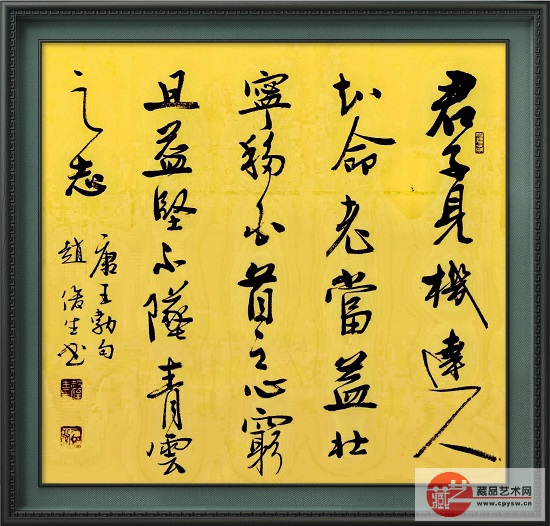 君子見機達人
知命老當益壮
寧移白首之心窮
且益堅不墜青雲
之志
唐王勃句
趙俊生书
藏艺
藏品艺术网
www.cpysw.cn